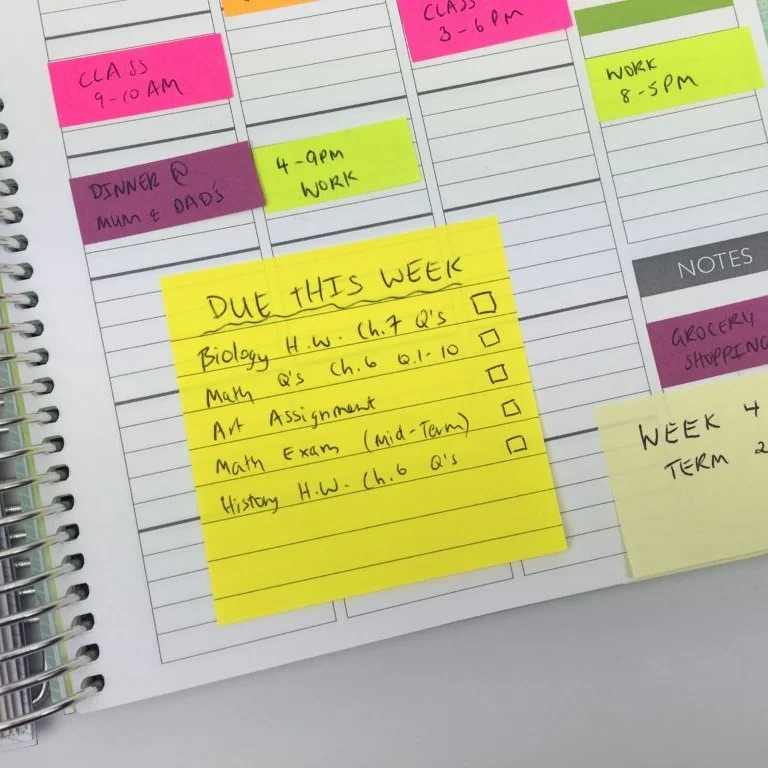 CLASS
3-6PM
CLASS
9-10AM
WORK
8-5PM
DINNER @
MUM & DAD'S
4-9PM
WORK
NOTES
GROCERY
SHOPPING
DUE THIS WEEK
Biology H.W. Ch.7 Q's
Math Q's Ch.6 Q.1-10
Art Assignment
Math Exam (Mid-Term)
History H.W. Ch.6 Q's
WEEK 4
TERM 2